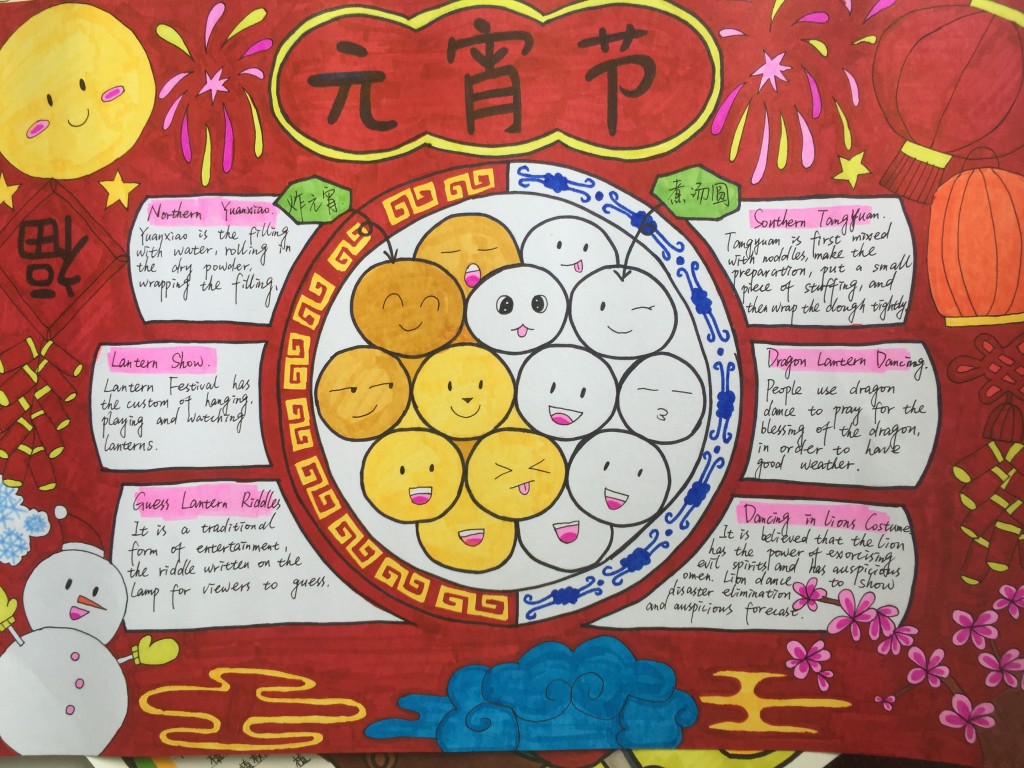 元宵节
福
炸元宵
煮汤圆
Northern Yuanxiao.
Yuanxiao is the filling
with water, rolling in
the dry powder.
wrapping the filling.
Lantern Show.
Lantern Festival has
the custom of hanging,
playing and watching
lanterns.
Guess Lantern Riddles
It is a traditional
form of entertainment,
the riddle written on the
Lamp for viewers to guess.
Sonthern TangYuan.
Tangyuan is first mixed
with noddles, make the
preparation, put a small
piece of stuffing, and
then wrap the dough tightly
Dragon Lantern Dancing.
People use dragon
dance to pray for the
blessing of the dragon,
in order to have
good weather.
Dancing in lions Costume
It is believed that the lion
has the power of exorcising
evil spirits and has auspicious
omen. Lion dance to show
disaster elimination
and auspicious forecast.